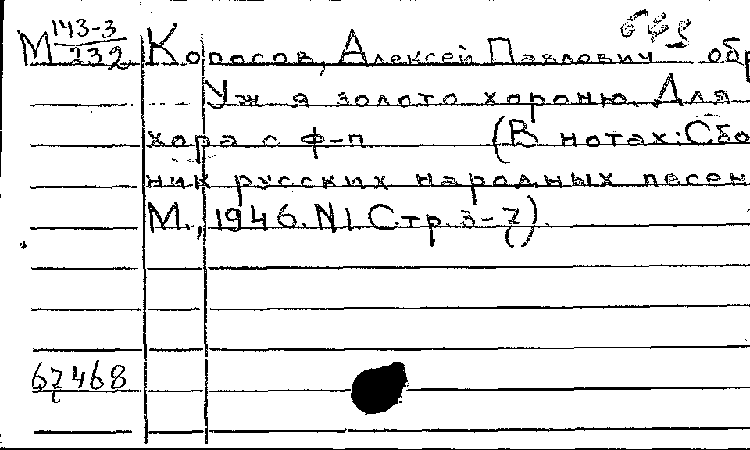 М 143-3/232 Коросов, Алексей Павлович обр
Уж я золото хороню. Для
хора с ф-п (В нотах: Сбо
ник русских народных песен
М., 1946. N1. Стр. 3-7).
67468